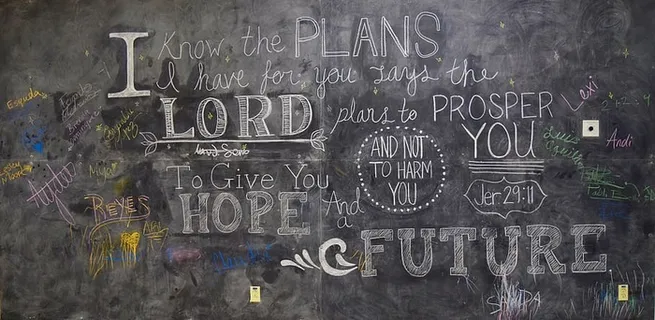 I Know the PLANS
I have for you says the
LORD plans to PROSPER
YOU
AND NOT
TO HARM
YOU
To Give You
HOPE And
a
FUTURE
Jer. 29:11
Esqueda
Lexi
Andi
Mya
REYES